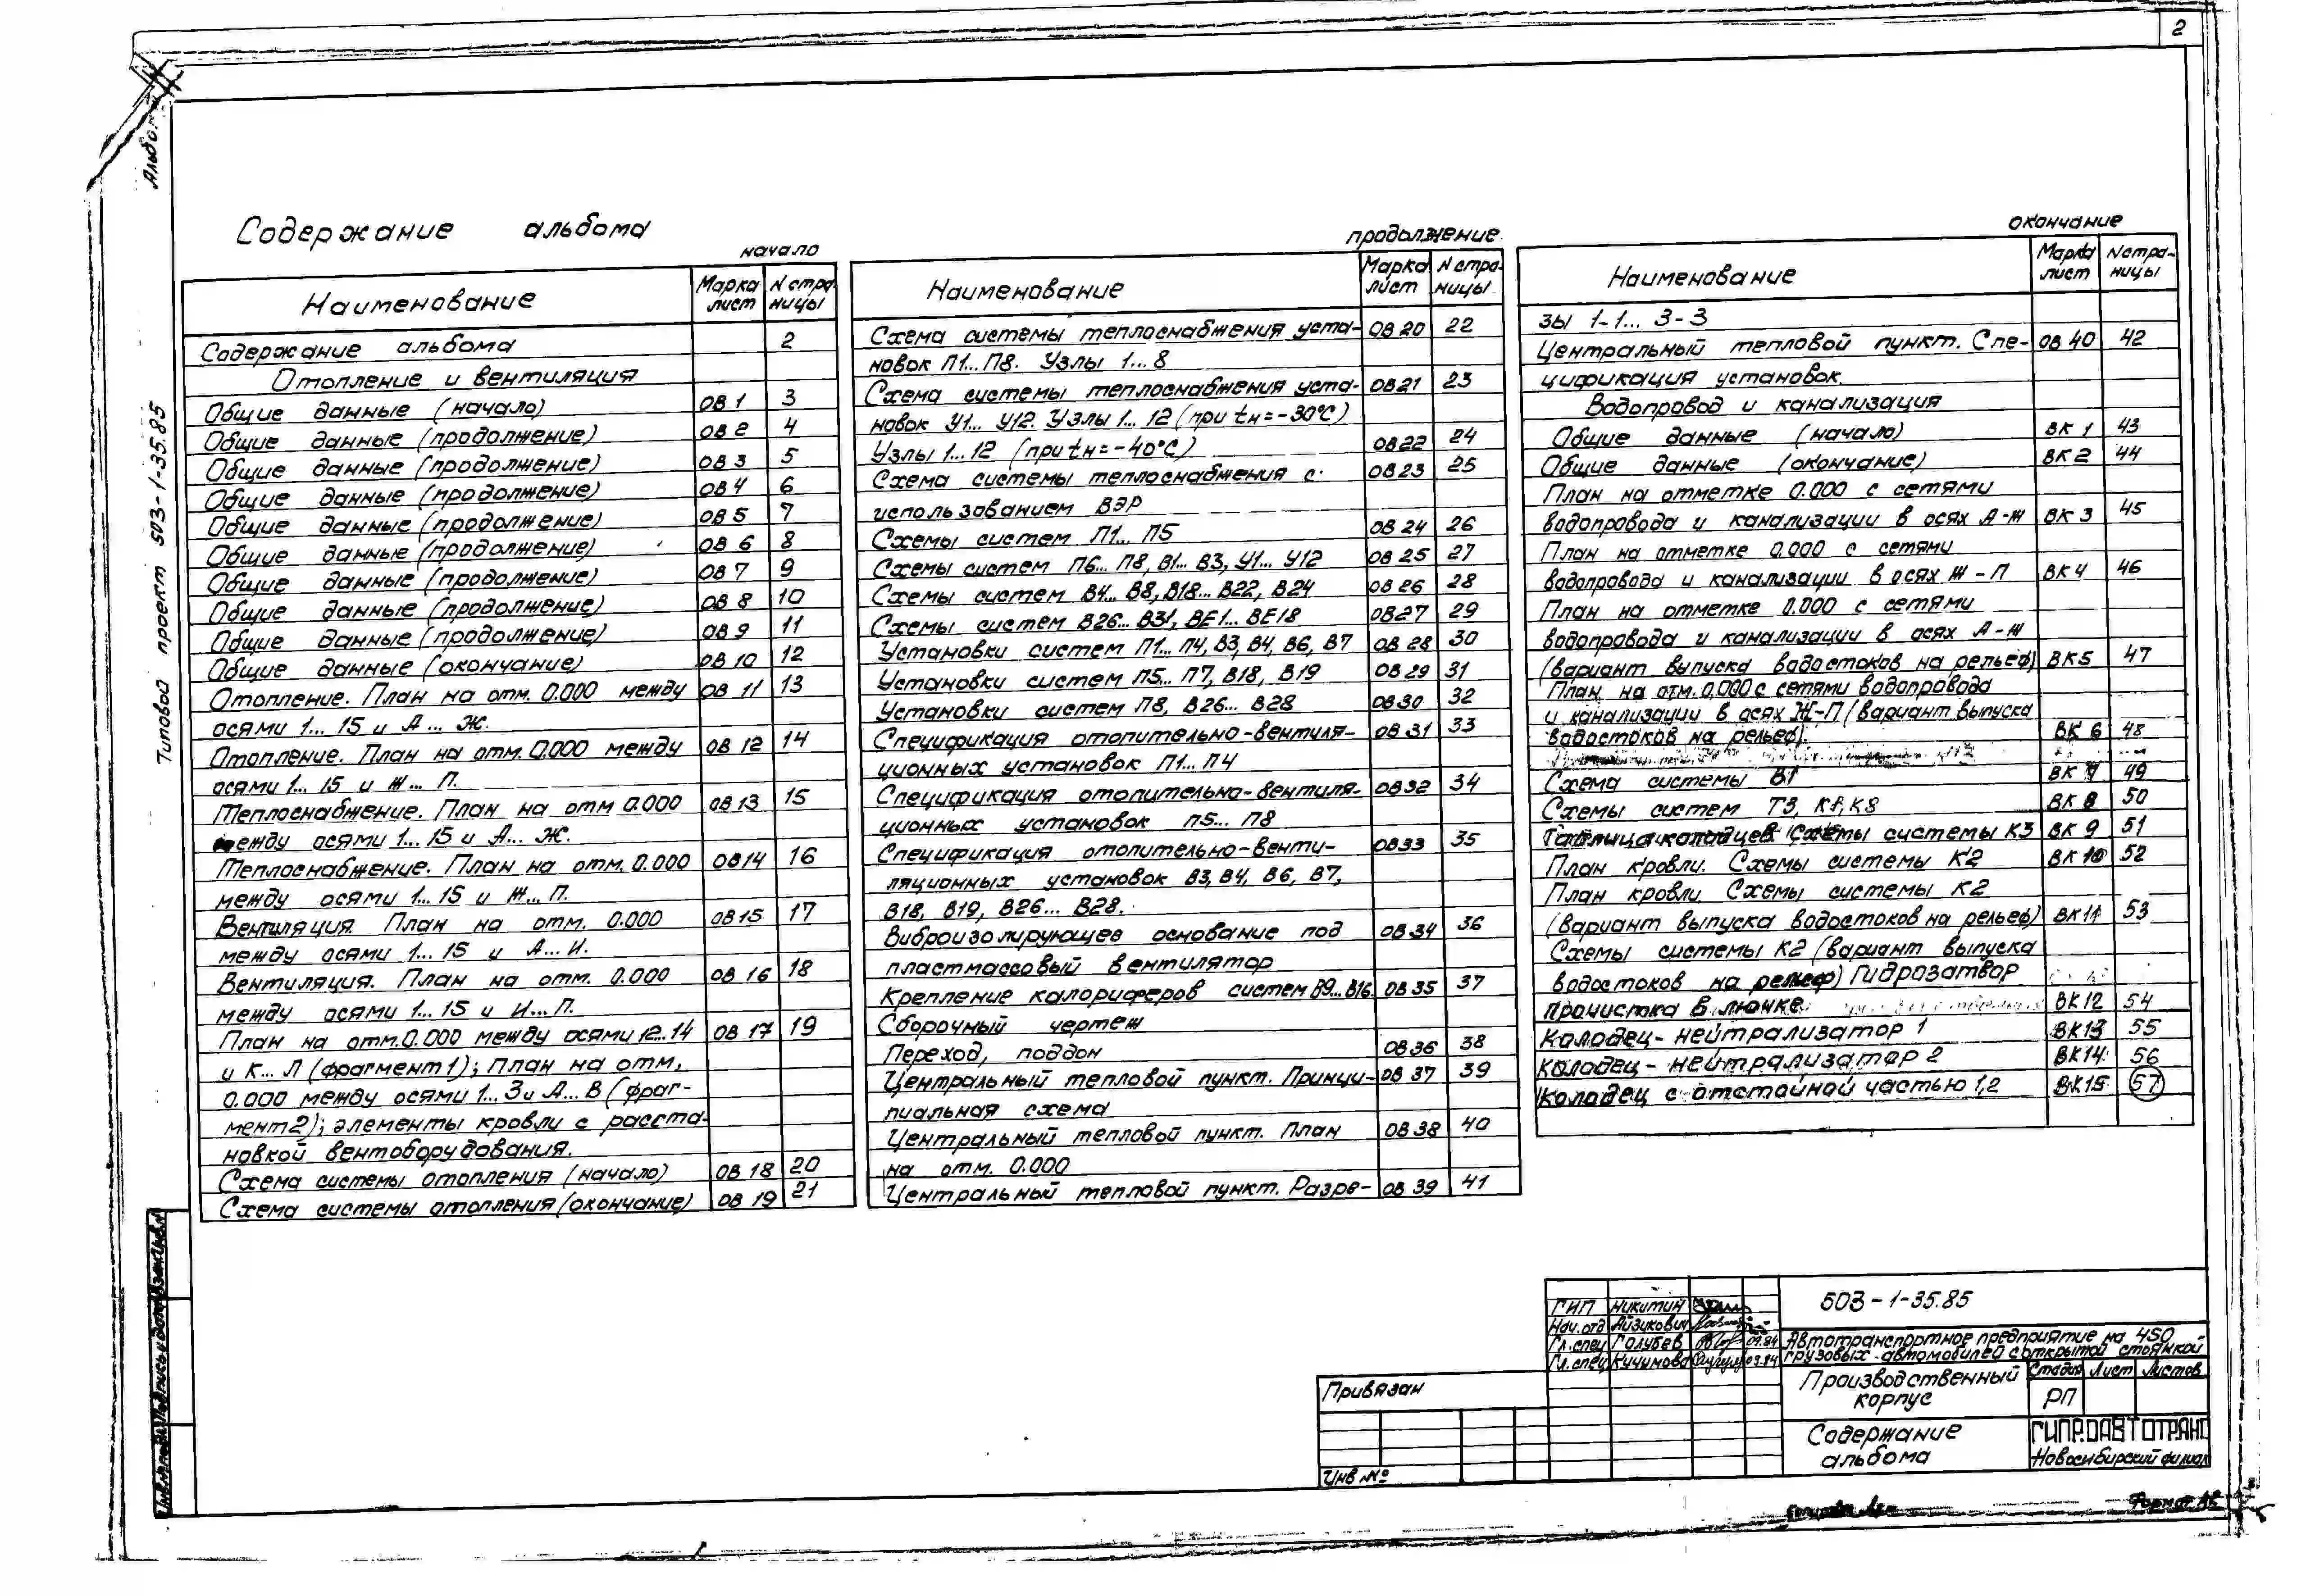 2
Альбом
Типовой проект 503-1-35.85
Содержание альбома
начало
Наименование Марка лист N страницы
Содержание альбома 2
Отопление и вентиляция
Общие данные (начало) ОВ 1 3
Общие данные (продолжение) ОВ 2 4
Общие данные (продолжение) ОВ 3 5
Общие данные (продолжение) ОВ 4 6
Общие данные (продолжение) ОВ 5 7
Общие данные (продолжение) ОВ 6 8
Общие данные (продолжение) ОВ 7 9
Общие данные (продолжение) ОВ 8 10
Общие данные (продолжение) ОВ 9 11
Общие данные (окончание) ОВ 10 12
Отопление. План на отм. 0.000 между ОВ 11 13
осями 1... 15 и А ... Ж.
Отопление. План на отм. 0.000 между ОВ 12 14
осями 1... 15 и Ж... П.
Теплоснабжение. План на отм 0.000 ОВ 13 15
между осями 1... 15 и А... Ж.
Теплоснабжение. План на отм. 0.000 ОВ 14 16
между осями 1... 15 и Ж... П.
Вентиляция. План на отм. 0.000 ОВ 15 17
между осями 1... 15 и А...И.
Вентиляция. План на отм. 0.000 ОВ 16 18
между осями 1... 15 и И...П.
План на отм. 0.000 между осями 12...14 ОВ 17 19
и К... Л (фрагмент 1); План на отм.
0.000 между осями 1... 3 и А... В (фраг-
мент 2); элементы кровли с расста-
новкой вентоборудования.
Схема системы отопления (начало) ОВ 18 20
Схема системы отопления (окончание) ОВ 19 21
продолжение
Наименование Марка лист N страницы
Схема системы теплоснабжения уста- ОВ 20 22
новок П1... П8. Узлы 1... 8
Схема системы теплоснабжения уста- ОВ 21 23
новок У1... У12. Узлы 1... 12 (при tн=-30°С)
Узлы 1... 12 (при tн=-40°С) ОВ 22 24
Схема системы теплоснабжения с ОВ 23 25
использованием ВЭР
Схемы систем П1... П5 ОВ 24 26
Схемы систем П6... П8, В1... В3, У1... У12 ОВ 25 27
Схемы систем В4... В8, В18... В22, В24 ОВ 26 28
Схемы систем В26... В31, ВЕ1... ВЕ18 ОВ 27 29
Установки систем П1... П4, В3, В4, В6, В7 ОВ 28 30
Установки систем П5... П7, В18, В19 ОВ 29 31
Установки систем П8, В26... В28 ОВ 30 32
Спецификация отопительно-вентиля- ОВ 31 33
ционных установок П1... П4
Спецификация отопительно-вентиля- ОВ 32 34
ционных установок П5... П8
Спецификация отопительно-венти- ОВ 33 35
ляционных установок В3, В4, В6, В7,
В18, В19, В26... В28.
Виброизолирующее основание под ОВ 34 36
пластмассовый вентилятор
Крепление калориферов систем В9...В16. ОВ 35 37
Сборочный чертеж
Переход, поддон ОВ 36 38
Центральный тепловой пункт. Принци- ОВ 37 39
пиальная схема
Центральный тепловой пункт. План ОВ 38 40
на отм. 0.000
Центральный тепловой пункт. Разре- ОВ 39 41
окончание
Наименование Марка лист N страницы
зы 1-1... 3-3
Центральный тепловой пункт. Спе- ОВ 40 42
цификация установок.
Водопровод и канализация
Общие данные (начало) ВК 1 43
Общие данные (окончание) ВК 2 44
План на отметке 0.000 с сетями
водопровода и канализации в осях А-Ж ВК 3 45
План на отметке 0.000 с сетями
водопровода и канализации в осях Ж-П ВК 4 46
План на отметке 0.000 с сетями
водопровода и канализации в осях А-Ж
(вариант выпуска водостоков на рельеф) ВК 5 47
План на отм. 0.000 с сетями водопровода
и канализации в осях Ж-П (вариант выпуска
водостоков на рельеф). ВК 6 48
Схема системы В1 ВК 7 49
Схемы систем Т3, К1, К8 ВК 8 50
Таблица колодцев Схемы системы К3 ВК 9 51
План кровли. Схемы системы К2 ВК 10 52
План кровли. Схемы системы К2
(вариант выпуска водостоков на рельеф) ВК 11 53
Схемы системы К2 (вариант выпуска
водостоков на рельеф) Гидрозатвор
Прочистка в лючке. ВК 12 54
Колодец-нейтрализатор 1 ВК 13 55
Колодец-нейтрализатор 2 ВК 14 56
Колодец с отстойной частью 1,2 ВК 15 57
ГИП Никитин
Нач. отд Айзикович
Гл. спец Голубев 09.84
Гл. спец Кичимова 09.84
503-1-35.85
Автотранспортное предприятие на 450
грузовых автомобилей с открытой стоянкой
Производственный корпус
Стадия Лист Листов
РП
Содержание альбома
ГИПРОАВТОТРАНС
Новосибирский филиал
Привязан
Инв №
Подпись и дата
Взам.инв.N
Формат